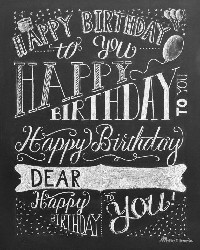 HAPPY BIRTHDAY
to YOU
HAPPY
BIRTHDAY
TO YOU
Happy Birthday
DEAR
Happy
BIRTHDAY
to
YOU!